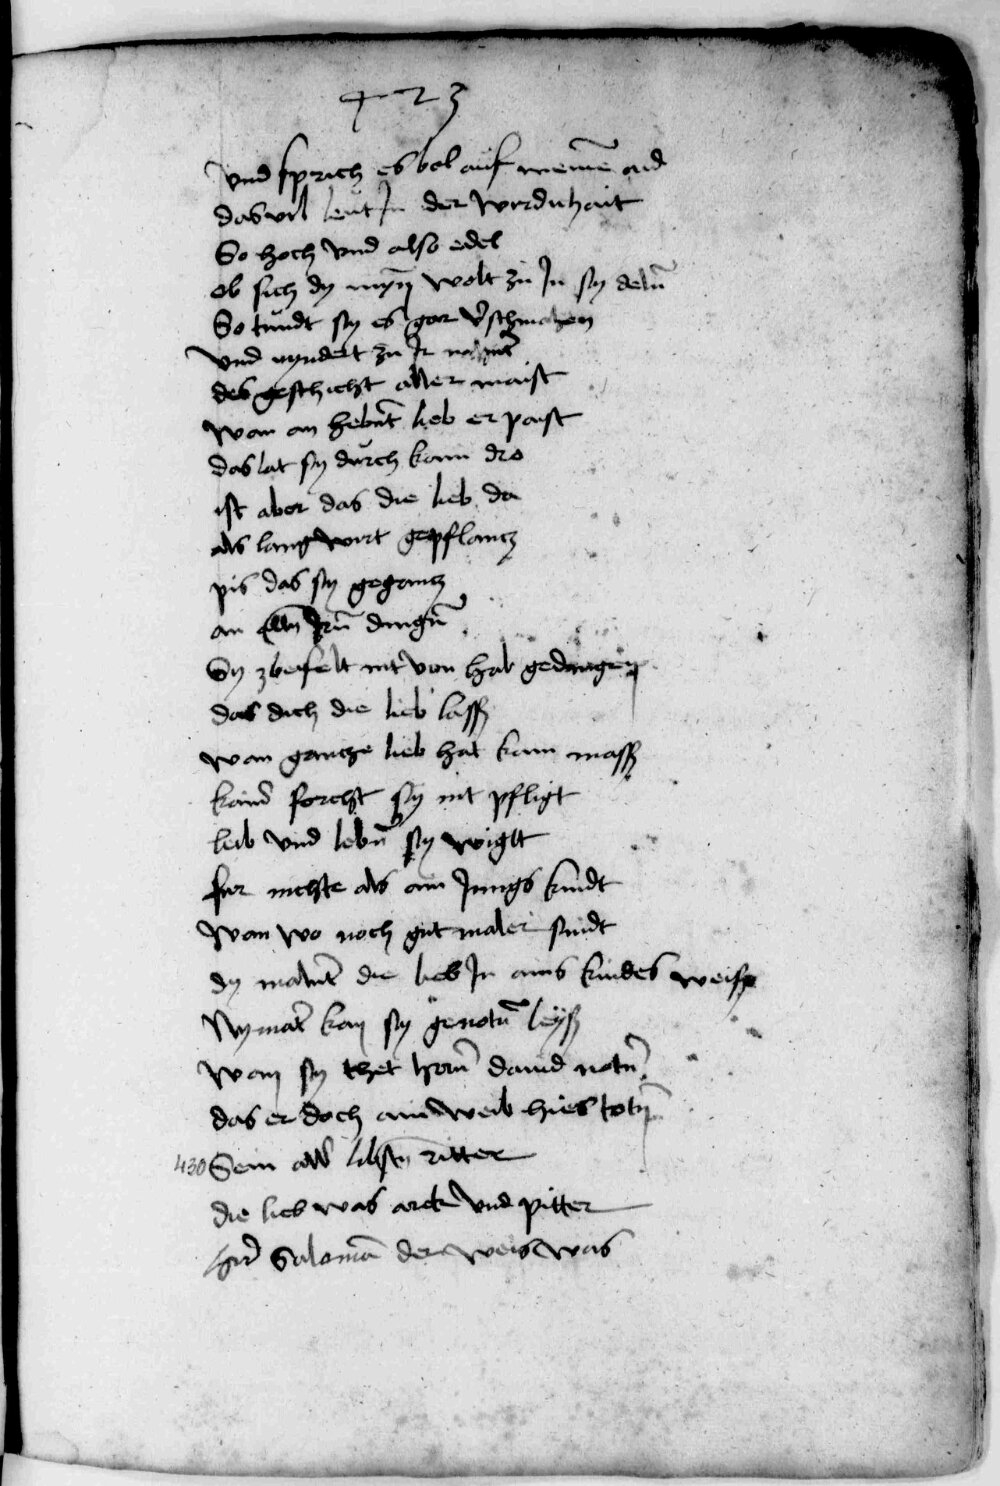 423
Vnd sprich es bol auf meinē aid
das vil leut In der werdichait
So hoch vnd also edel
ob sich dy myn̄ wolt zu In sy
So tundt sy es gar v̄schmahen
vnd nyndert zu Ir
des geschicht aller maist
wan an lieb er paist
das lat sy durch kain dro
ist aber das die lieb da
als lang wirt gepflantz
pis das sy gegantz
an allen Irn̄ dingn̄
Sy zbeifelt nit von hab gedingen
das dich die lieb lass
wan gantze lieb hat kain mass
kaind̄ forcht sy nit pfligt
leib vnd lebn̄ sy wigtt
fur nichte als ain Jungs kindt
wan wo noch gut maler sindt
dy malnt̄ die lieb In ains kindes weiss
Nymāt kan sy genotn̄ leyss
wan sy thet hern̄ dauid notn̄
das er doch ain weib hies totn̄
430 Sein all̄ libstn̄ ritter
die lieb was arck vnd pitter
her̄ Salomā der weis was